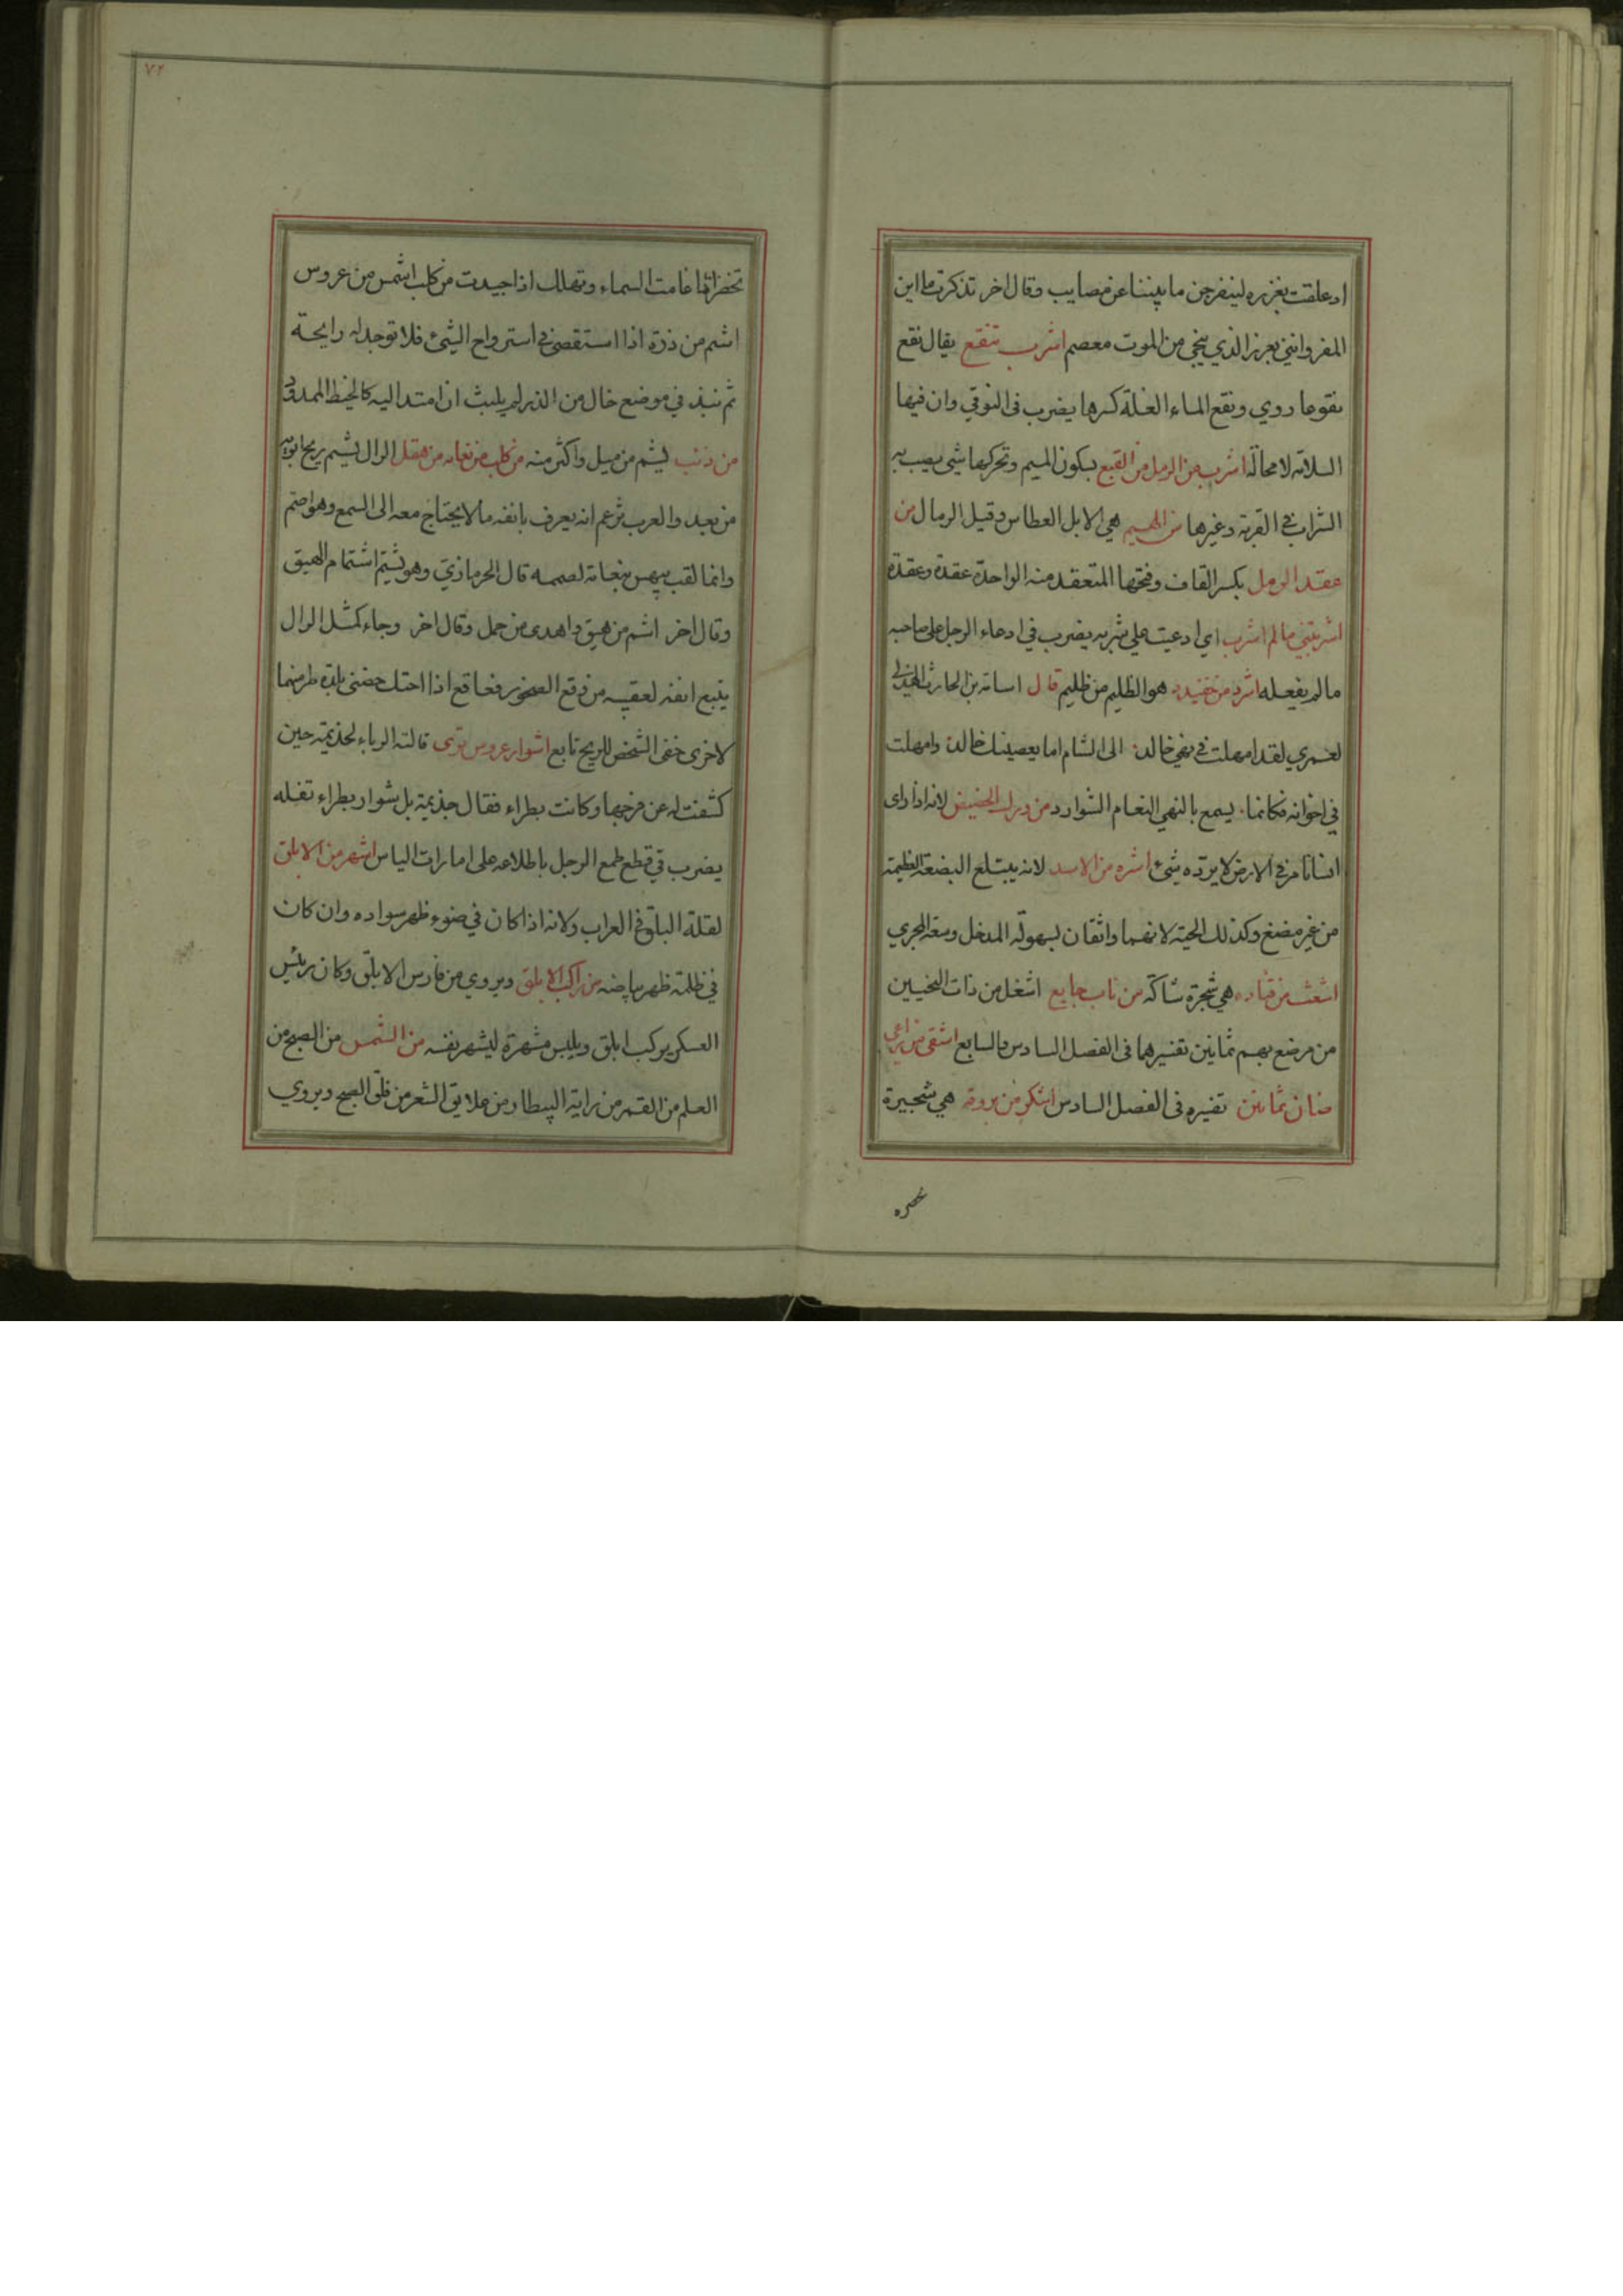 او علقت بغرزه لينفرجن ما بيننا عن مصايب وقال اخر تذكرت ما اين
المفر وانني بغرز الذي ينجي من الموت معصم اشرب تنقع يقال نقع
نقوعا روي ونقع الماء الغلة كسرها يضرب في التوقي وان فيها
السلامة لا محالة اشرب من الرمل من القمع بسكون الميم وتحركها شي يصب به
الشراب في القربة وغيرها من الهيم هي الابل العطاس وقيل الرمال من
عقد الرمل بكسر القاف وفتحها المتعقد منه الواحدة عقدة وعقدة
اشربتني ما لم اشرب اي ادعيت علي شربه يضرب في ادعاء الرجل على صاحبه
ما لم يفعله اشرد من خفيدد هو الظليم من ظليم قال اسامة بن الحارث الهذلي
لعمري لقد امهلت في نهي خالد الى الشام اما يعصينك خالد وامهلت
في اخوانه فكانما يسمع بالنهي النعام الشوارد من ورل الحضيض لانه اذا راى
انسانا مر في الارض لا يرده شئ اشره من الاسد لانه يبتلع البضعة العظيمة
من غير مضغ وكذلك الحية لانهما واثقان بسهولة المدخل وسعة المجري
اشعث من قتاده هي شجرة شاكة من ناب جايع اشغل من ذات النحيين
من مرضع بهم ثمانين تفسيرهما في الفصل السادس والسابع اشقى من راعي
ضان ثمانين تفسيره في الفصل السادس اشكر من بروقة هي شجيرة
تخضر
٧٢
تخضر اذا غامت السماء وتهلك اذا جيدت من كلب اشمس من عروس
اشم من ذرة اذا استقصى في استرواح الشئ فلا توجد له رايحة
ثم نبذ في موضع خال من الذر لم يلبث ان امتد اليه كالخيط الممدود
من ذئب يشم من ميل واكثر منه من كلب من نعامه من هقل الرال يشم ريح ابويه
من بعيد والعرب تزعم انه يعرف بانفه ما لا يحتاج معه الى السمع وهو اصم
وانما لقب بيهس بنعامة لصممه قال الحرمازي وهو يشتم اشتمام الهيق
وقال اخر اشم من هيق واهدى من جمل وقال اخر وجاء كمثل الرال
يتبع انفه لعقبيه من وقع الصخور فعاقع اذا احتك حضني بلدة طر منهما
لاخرى خفى الشخص للريح تابع اشوار عروس ترى قالته الرباء لجذيمة حين
كشفت له عن فرجها وكانت بطراء فقال جذيمة بل شوار بطراء تفله
يضرب في قطع طمع الرجل باطلاعه على امارات الياس اشهر من الابلق
لقلة البلق في العراب ولانه اذا كان في ضوء ظهر سواده وان كان
في ظلمة ظهر بياضه من راكب الابلق ويروي من فارس الابلق وكان رئيس
العسكر يركب ابلق ويلبس مشهرة ليشهر نفسه من الشمس من الصبح من
العلم من القمر من راية البيطار من علايق الشعر من فلق الصبح ويروي